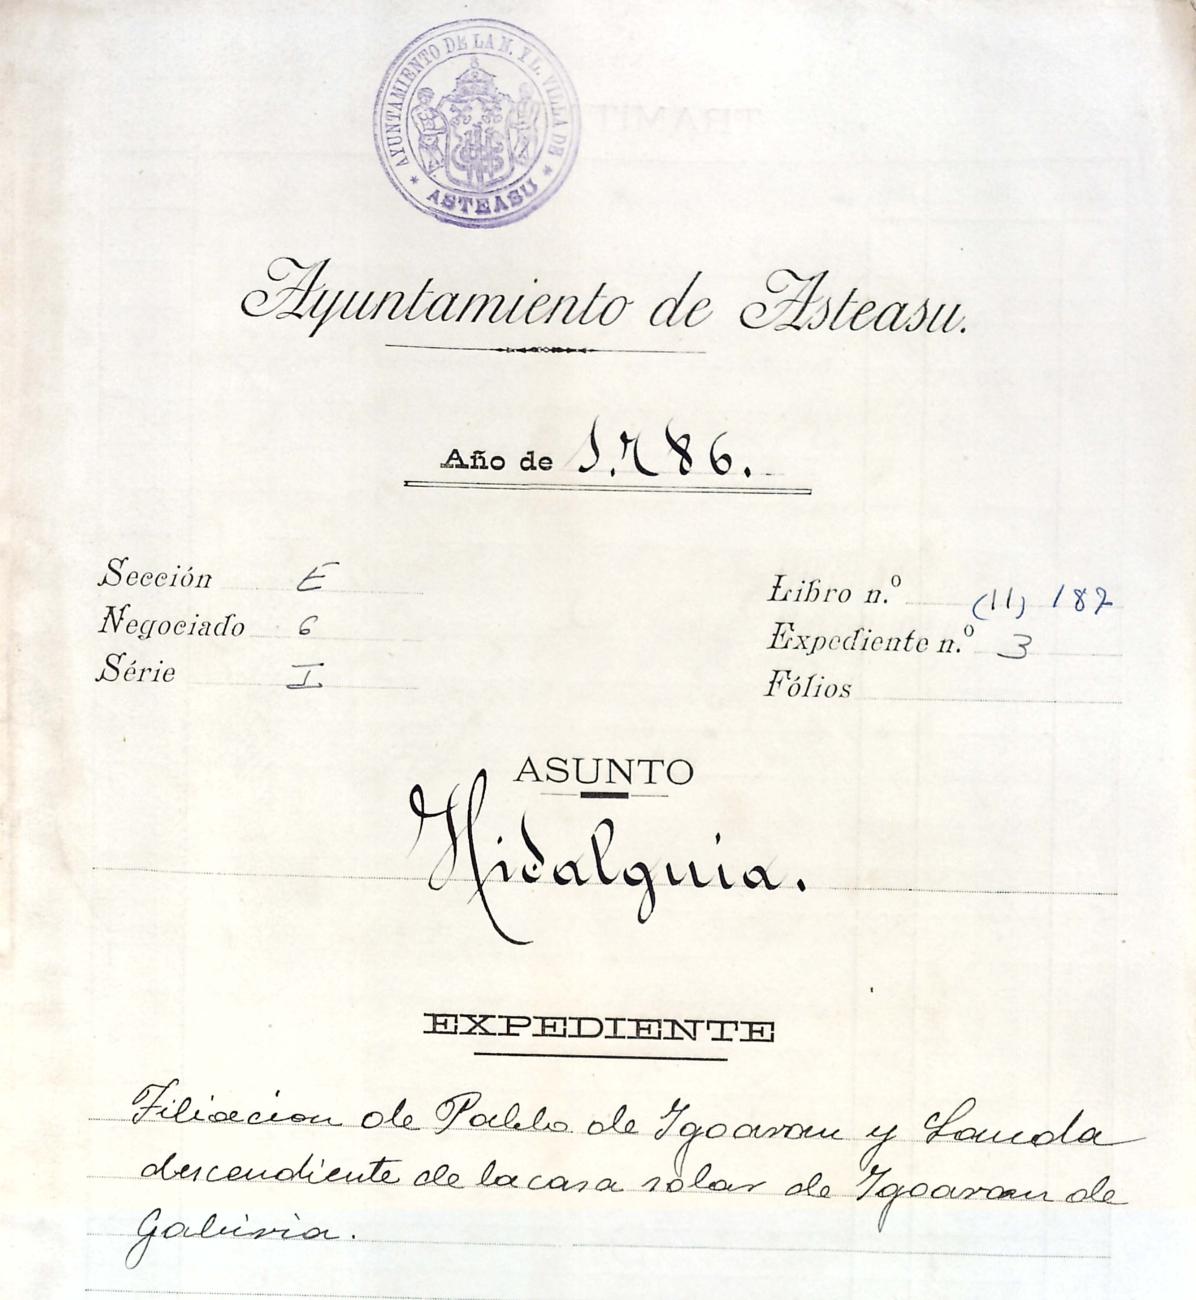 AYUNTAMIENTO DE LA N. Y L. VILLA DE
* ASTEASU *
Ayuntamiento de Asteasu.
Año de 1.786.
Sección E
Negociado 6
Série I
Libro n.º (11) 187
Expediente n.º 3
Fólios
ASUNTO
Hidalguia.
EXPEDIENTE
Filiacion de Pablo de Ygoaran y Landa
descendiente de la casa solar de Ygoaran de
Gabiria.